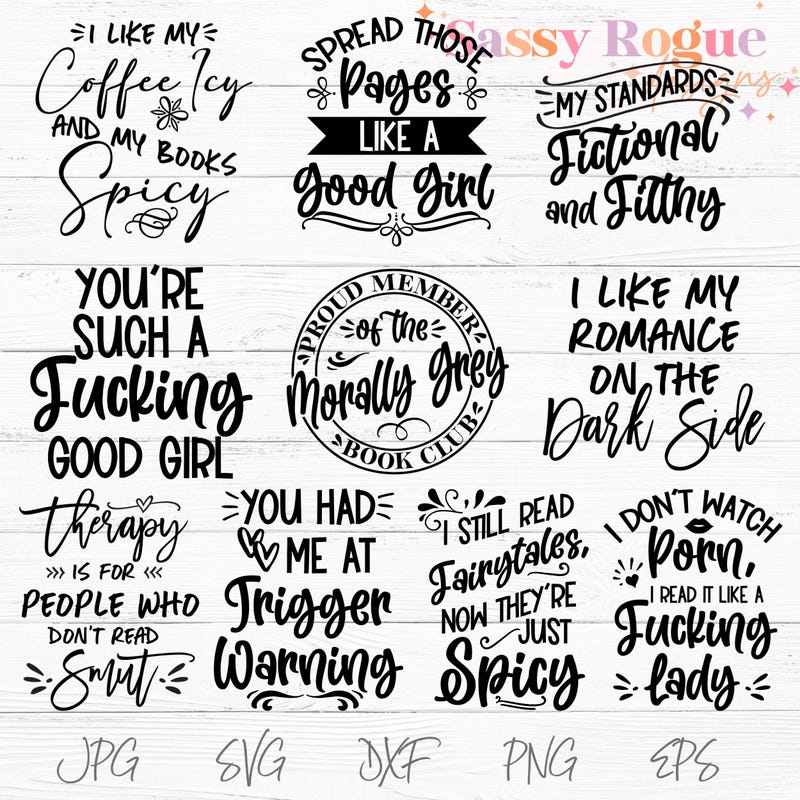 Sassy Rogue
Designs
I LIKE MY
Coffee Icy
AND MY BOOKS
Spicy
SPREAD THOSE
Pages
LIKE A
good girl
MY STANDARDS
Fictional
and Filthy
YOU'RE
SUCH A
Fucking
GOOD GIRL
PROUD MEMBER
of the
Morally Grey
BOOK CLUB
I LIKE MY
ROMANCE
ON THE
Dark Side
therapy
IS FOR
PEOPLE WHO
DON'T READ
Smut
YOU HAD
ME AT
Trigger
Warning
I STILL READ
Fairytales,
NOW THEY'RE
JUST
Spicy
I DON'T WATCH
Porn,
I READ IT LIKE A
Fucking
lady
JPG SVG DXF PNG EPS